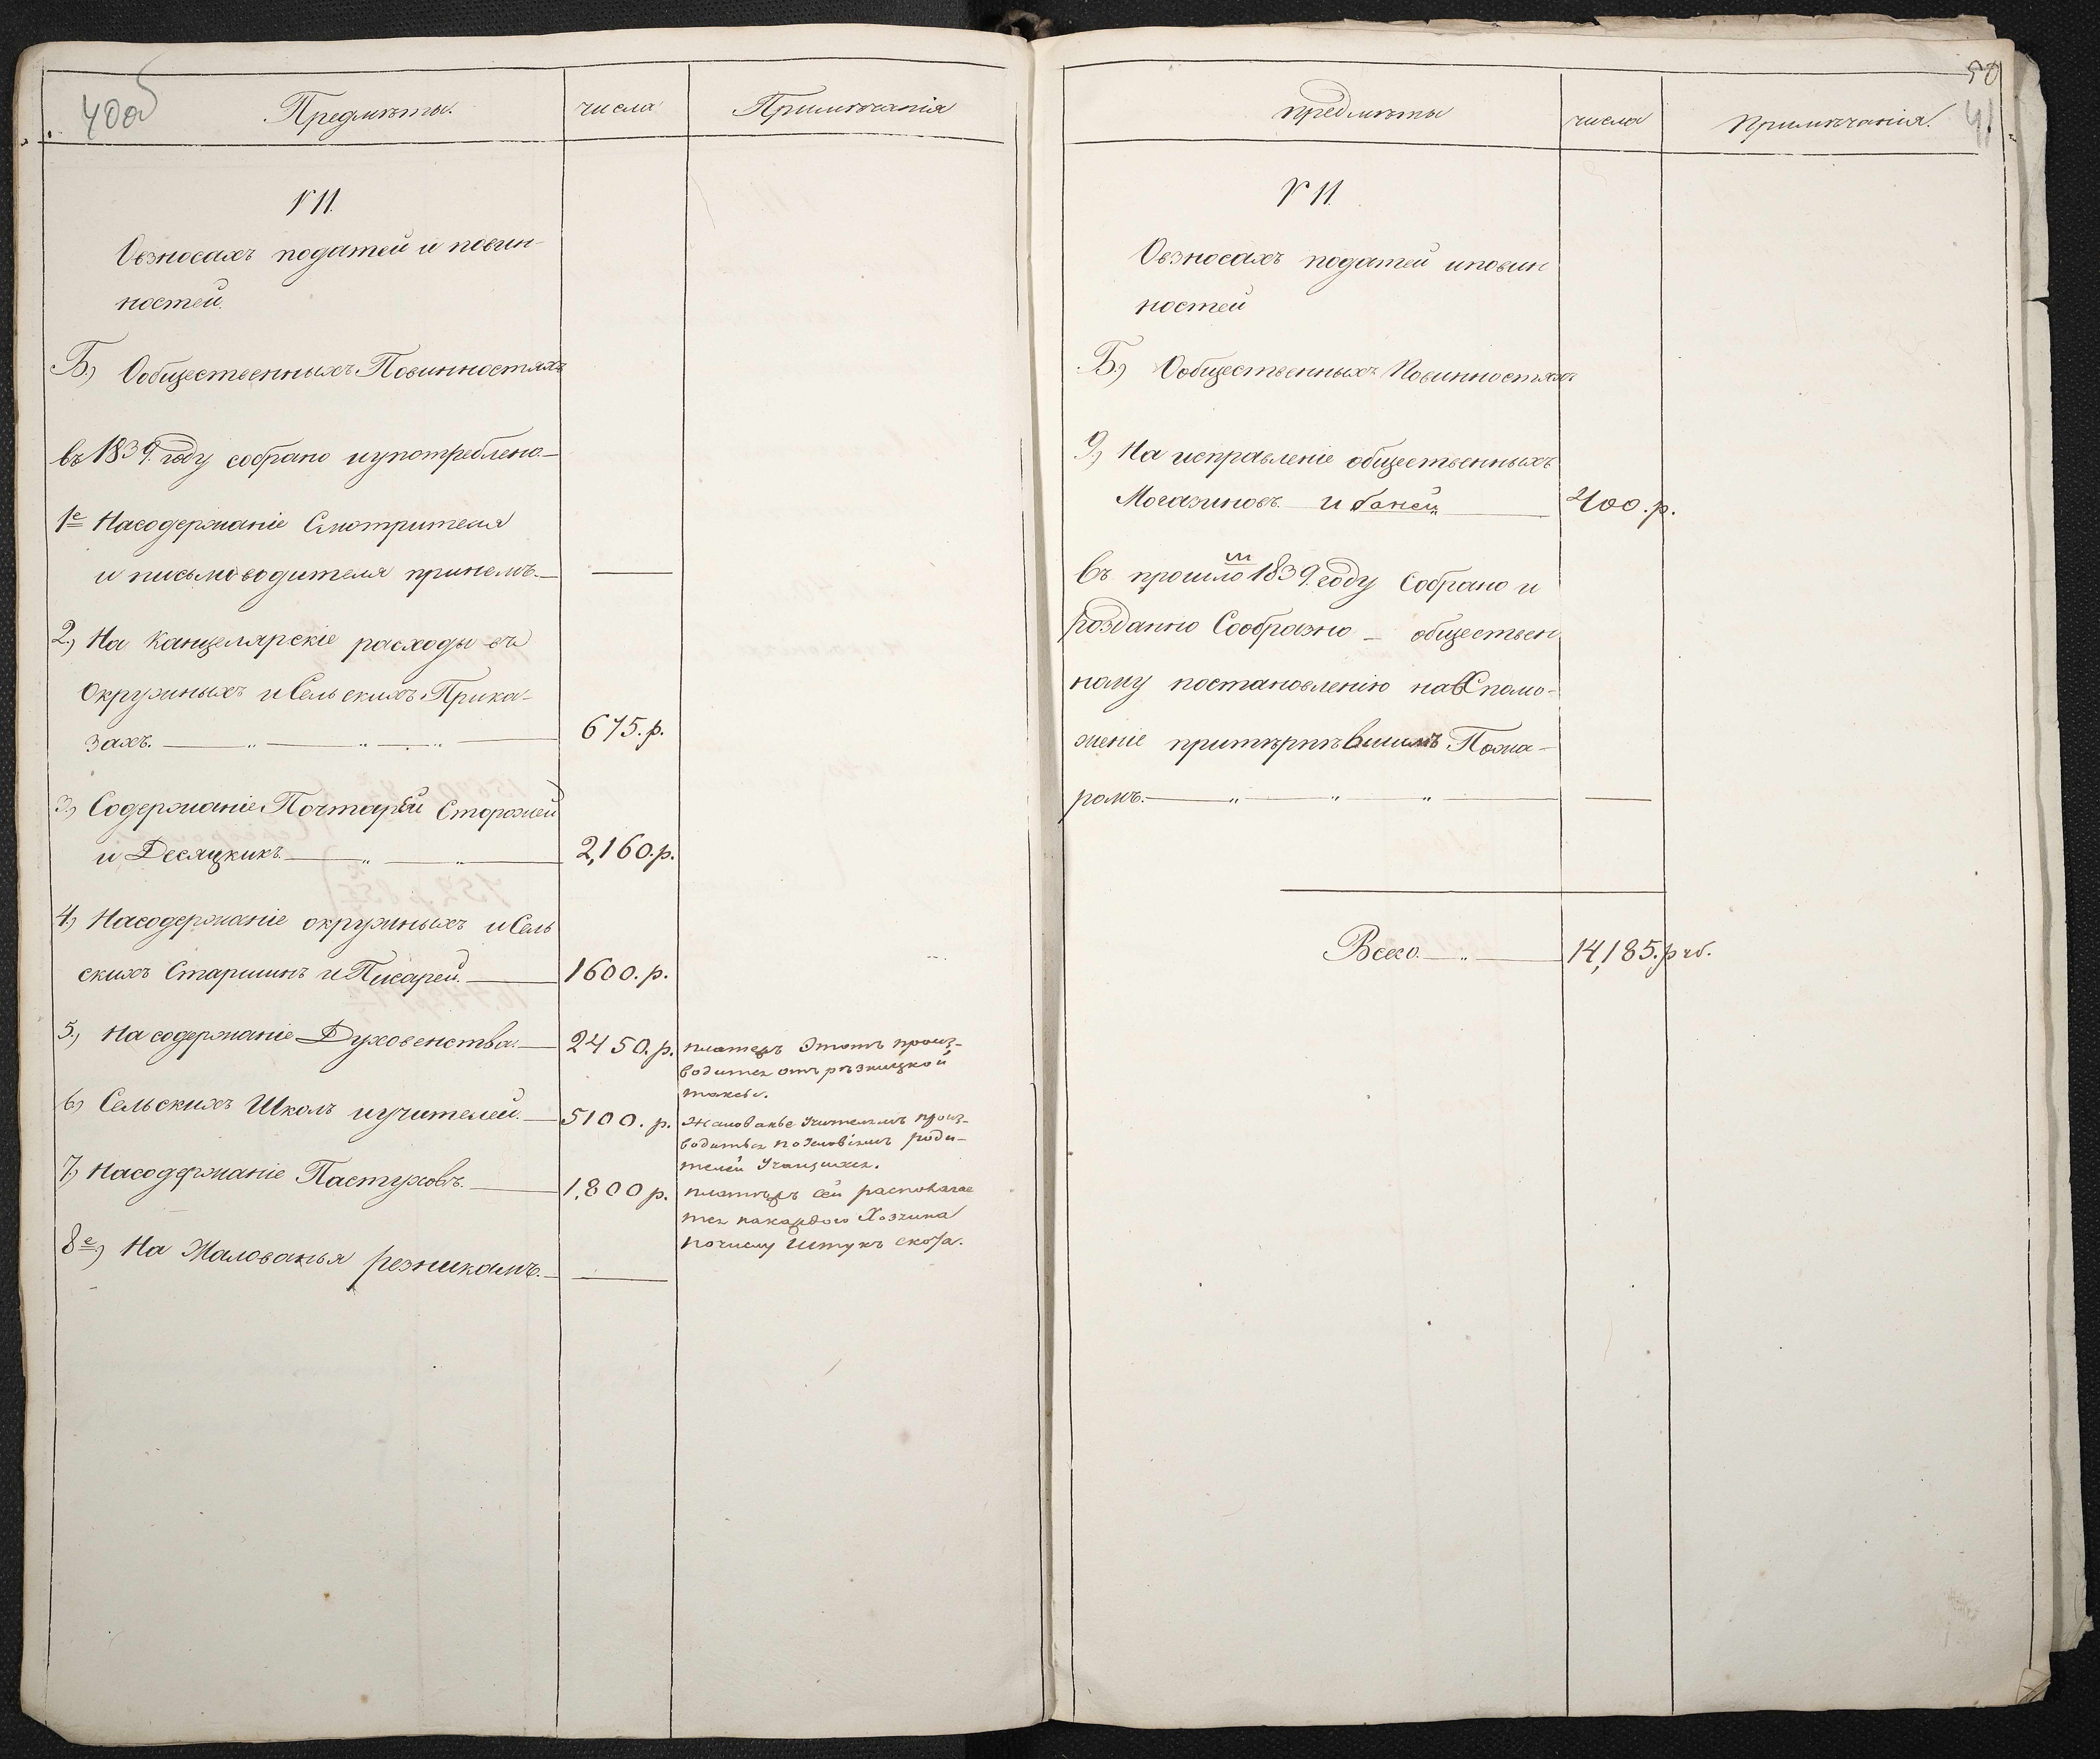 40об
Предмѣты.
числа
Примѣчанія
№ 11.
Овзносахъ податей и повин-
ностей.
Б.) Ообщественныхъ Повинностяхъ
въ 1839. году собрано иупотреблено.—
1е Насодержаніе Смотрителя
и письмоводителя принемъ.— —
2.) На Канцелярскіе расходы въ
Окружныхъ иСельскихъ Прика-
захъ. — „ — „ — „ — 675. р.
3.) Содержаніе Почтарей Сторожей
и Десяцкихъ — „ — „ — 2,160. р.
4.) Насодержаніе окружныхъ иСель
скихъ Старшинъ иПисарей. — 1600. р.
5.) На содержаніе Духовенства. — 2450. р.
платежъ Этотъ произ-
водится отъ рѣзницкой
таксы.
6.) Сельскихъ Школъ иучителей. — 5100. р.
Жалованье Учителямъ произ-
водиться поУсловіямъ роди-
телей Учащихся.
7.) Насодержаніе Пастуховъ. — 1,800 р.
платежъ сей располагае
тся накаждого Хозяина
почислу Штукъ скота.
8е.) На Жалованья резникамъ. — —
50
41
предмѣты
числа
Примѣчанія.
№ 11.
Овзносахъ податей иповин
ностей
Б.) Ообщественныхъ Повинностяхъ
9.) На исправленіе общественныхъ
Могазиновъ и баней — 400. р.
въ прошломъ 1839. году Собрано и
розданно Сообразно — обществен
ному постановленію наВспомо-
женіе притѣрпѣвшимъ Пожа-
ромъ. — „ — „ — „ — —
Всего. — „ — 14,185. руб.